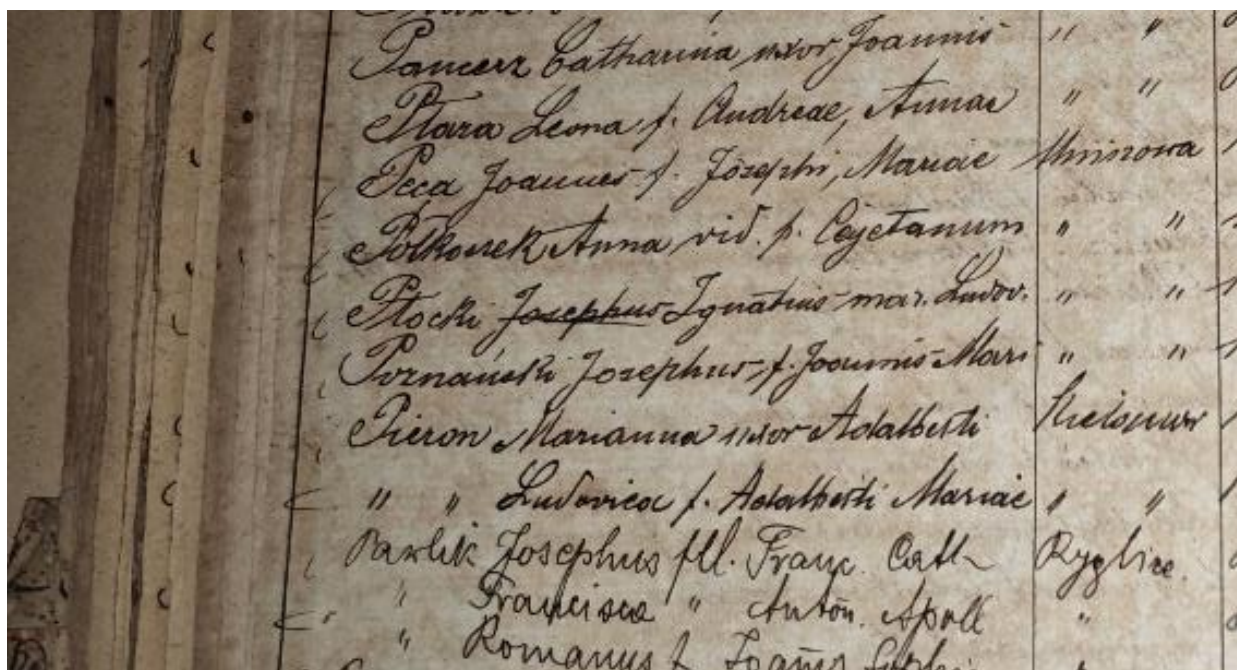 Pancerz Catharina uxor Joannis " "
Ptara Leona f. Andreae, Annae " "
Peca Joannes f. Josephi, Mariae Uniszowa
Połkoszek Anna vid. p. Cajetanum " "
Płocki Josephus Ignatius mar. Ludov. " "
Poznański Josephus, f. Joannis Mari " "
Pieron Marianna uxor Adalberti
" " Ludovica f. Adalberti Mariae " "
Pawlik Josephus fil. Franc. Cath Ryglice.
" Francisca " Anton. Apoll "
" Romanus f. Joannis